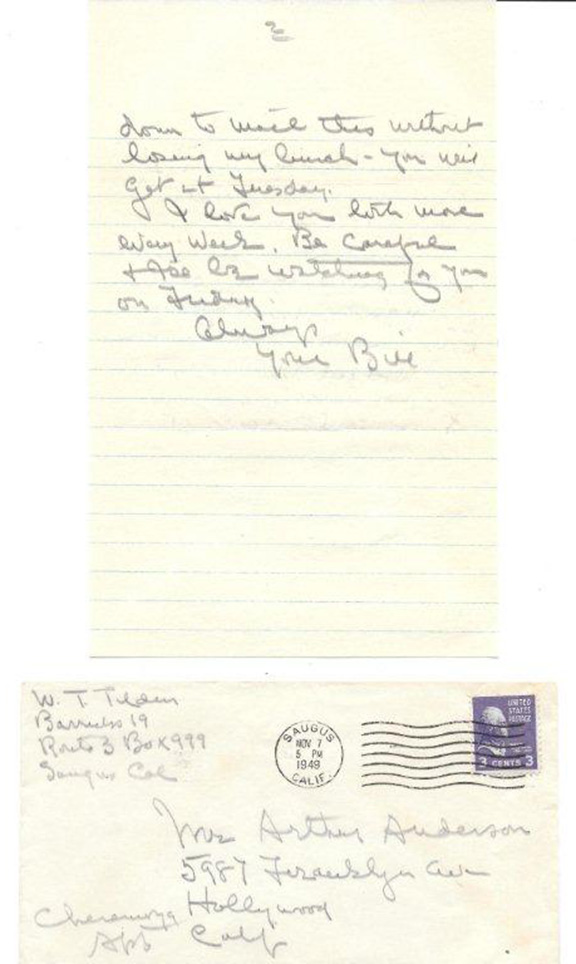 2
down to mail this without
losing my lunch - you will
get it Tuesday.
I love you both more
every week. Be careful
& I'll be watching for you
on Friday.
Always
Your Bill
W. T. Tilden
Barracks 19
Route 3 Box 999
Saugus Cal
SAUGUS
NOV 7
5 PM
1949
CALIF.
UNITED
STATES
POSTAGE
3 CENTS 3
Mrs Arthur Anderson
5987 Franklyn Ave
Hollywood
Calif
Cheremoya
Apts